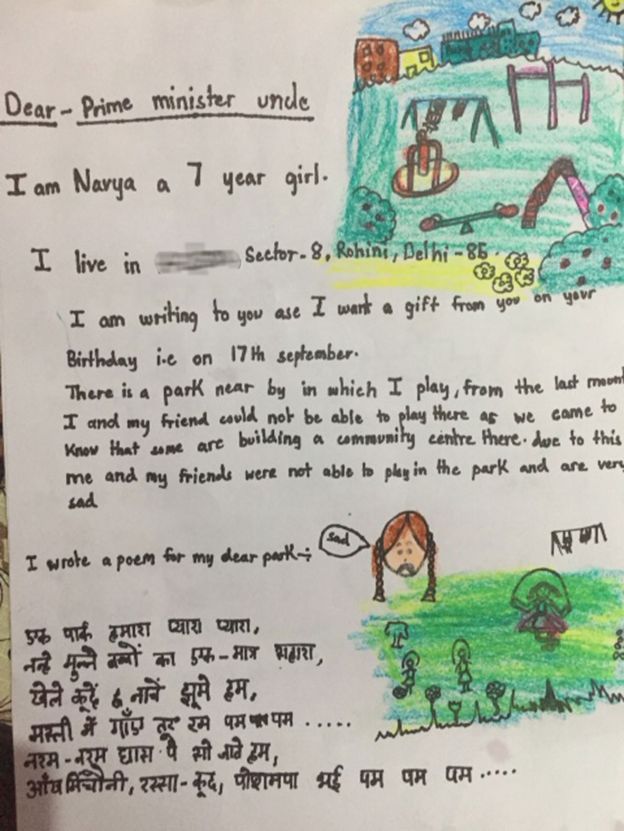 Dear - Prime minister uncle
I am Navya a 7 year girl.
I live in Sector-8, Rohini, Delhi-85.
I am writing to you ase I want a gift from you on your
Birthday i.e on 17th september.
There is a park near by in which I play, from the last mount
I and my friend could not be able to play there as we came to
Know that some are building a community centre there. due to this
me and my friends were not able to play in the park and are very
sad
I wrote a poem for my dear park:-
sad
एक पार्क हमारा प्यारा प्यारा,
नन्हे मुन्ने बच्चों का एक-मात्र सहारा,
खेले कूदें नाचें झूमे हम,
मस्ती में गाँए तूर रम पम पम .....
नरम-नरम घास पे सो जावे हम,
आँख मिचौनी, रस्सा-कूद, पोशमपा भई पम पम पम .....